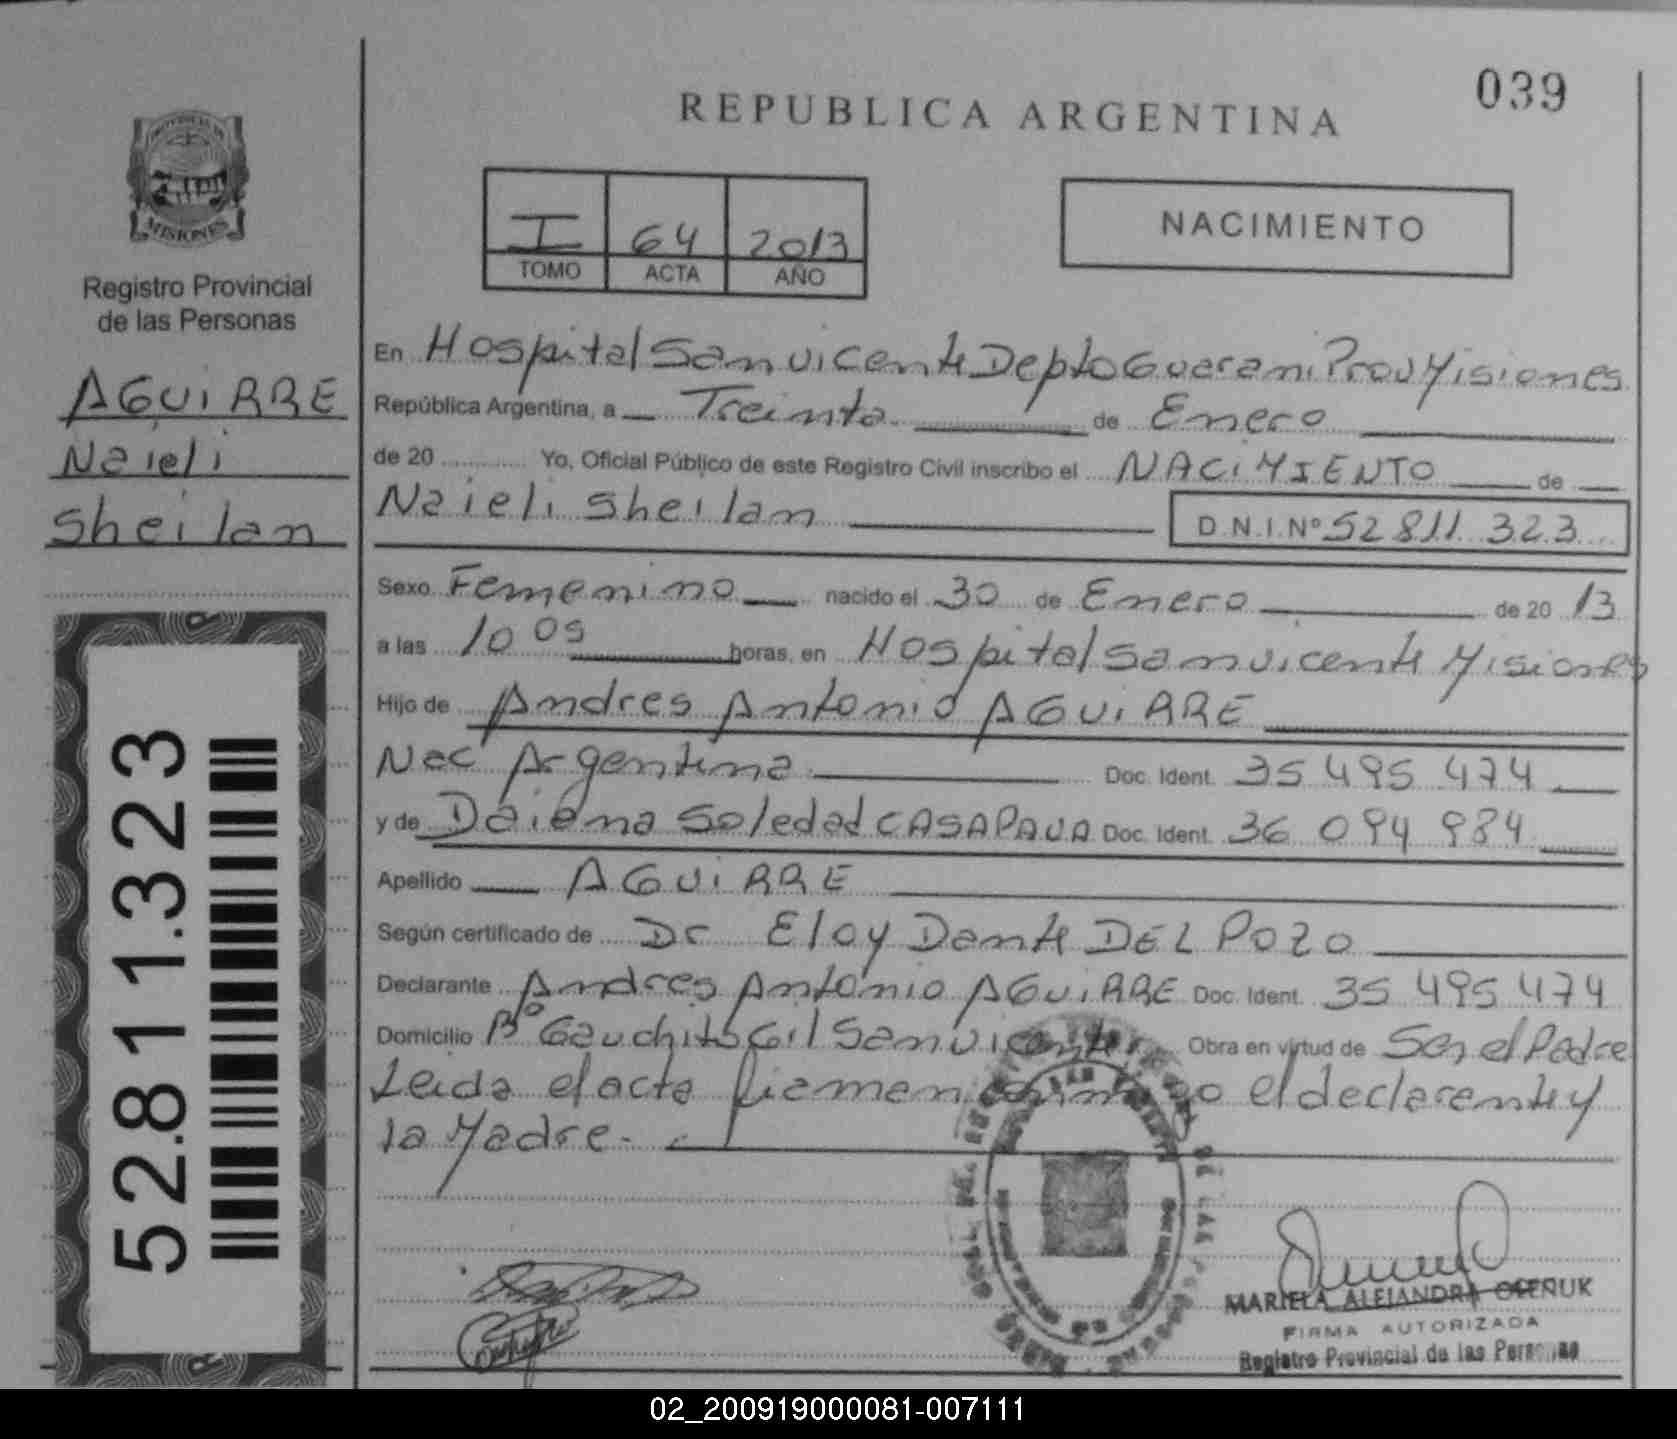 039
REPUBLICA ARGENTINA
PROVINCIA DE
MISIONES
Registro Provincial
de las Personas
AGUIRRE
Naieli
Sheilan
52.811.323
I 64 2013
TOMO ACTA AÑO
NACIMIENTO
En Hospital San Vicente Depto Guarani Prov Misiones
República Argentina, a Treinta de Enero
de 20 Yo, Oficial Público de este Registro Civil inscribo el NACIMIENTO de
Naieli Sheilan D.N.I. Nº 52 811 323
Sexo Femenino nacido el 30 de Enero de 20 13
a las 10 05 horas, en Hospital San Vicente Misiones
Hijo de Andres Antonio AGUIRRE
Nac Argentina Doc. Ident. 35 495 474
y de Daiana Soledad CASAPAVA Doc. Ident. 36 094 984
Apellido AGUIRRE
Según certificado de Dr Eloy Dante DEL POZO
Declarante Andres Antonio AGUIRRE Doc. Ident. 35 495 474
Domicilio Bº Gauchito Gil San Vicente Obra en virtud de Ser el Padre
Leida el acta firman conmigo el declarante y
la Madre.
MARIELA ALEJANDRA
FIRMA AUTORIZADA
Registro Provincial de las Personas
02_200919000081-007111